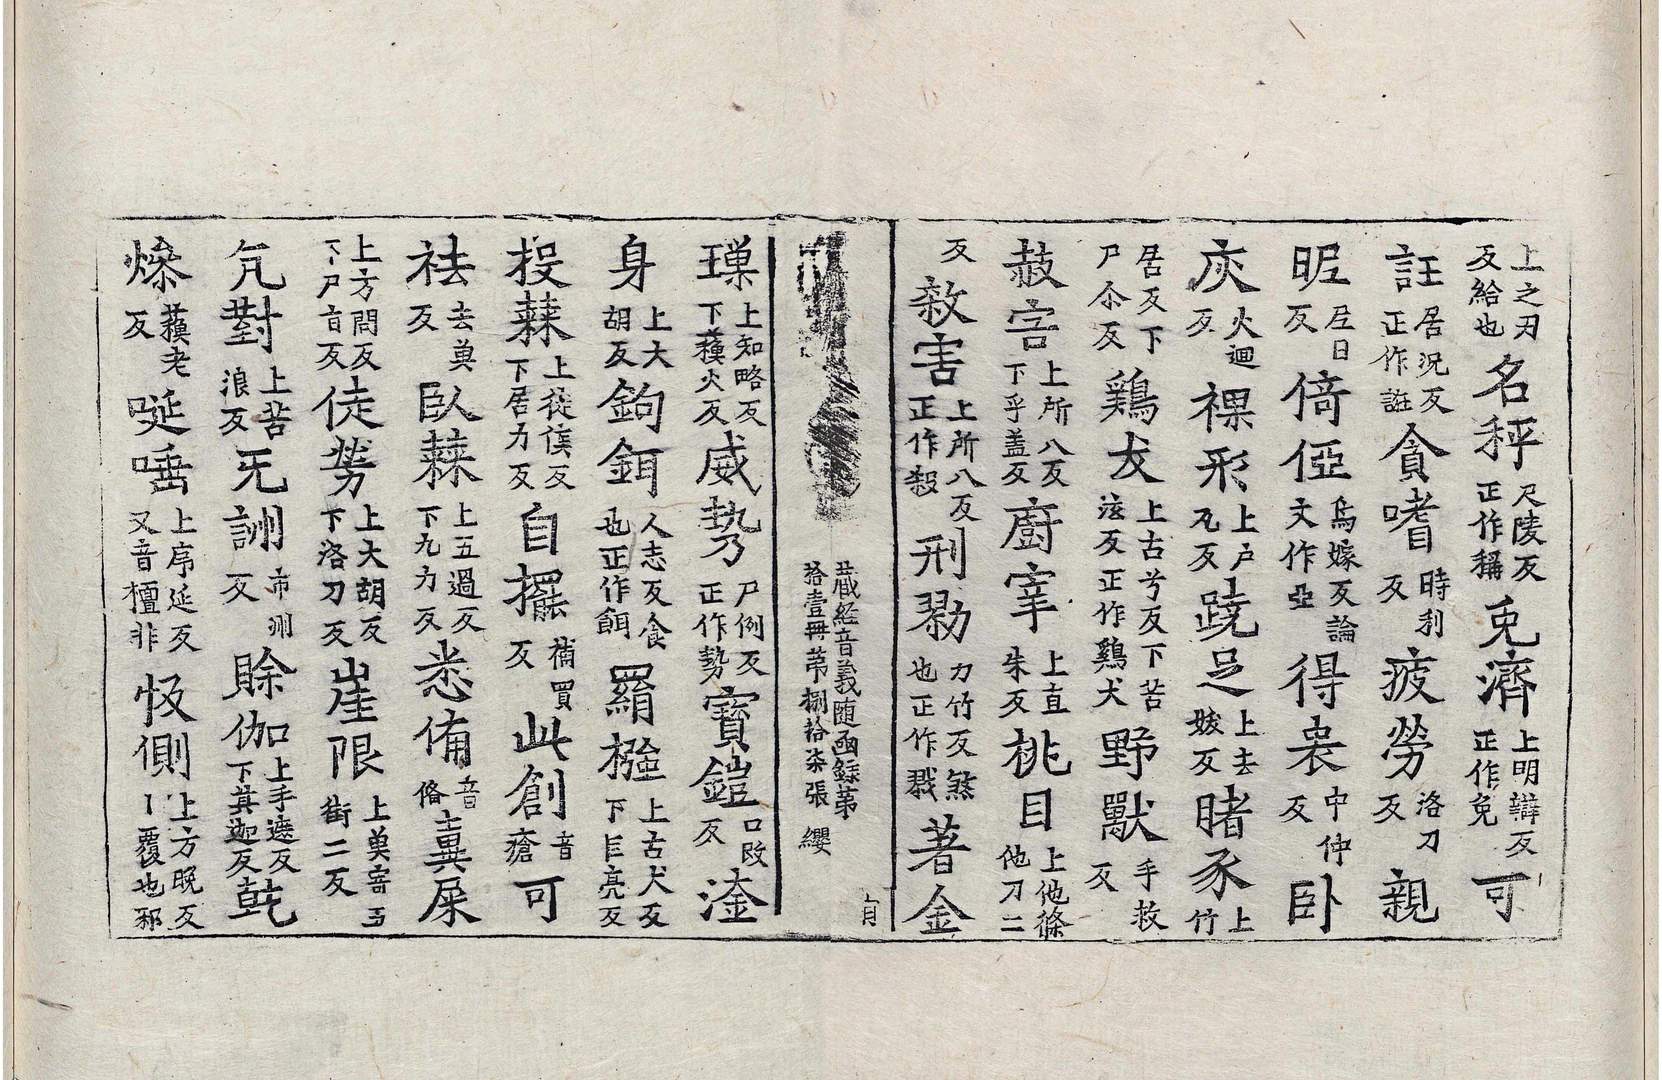 上之刃反給也名秤尺陵反正作稱兎濟上明辯反正作免可
註居況反正作誑貪嗜時利反疲勞洛刀反親
昵𡰱日反倚俹烏嫁反論文作亞得衆中仲反卧
灰火迴反裸形上戶瓦反蹺足上去妭反睹豕上竹
居反下尸尒反鷄犮上古兮反下苦泫反正作鷄犬野獸手救反
𢾾害上所八反下乎盖反廚宰上直朱反桃目上他條他刀二
反敹害上所八反正作殺刑剹力竹反煞也正作戮著金
藏經音義随函錄苐
拾壹冊苐捌拾柒張 纓
瑵上知略反下蘓火反威㔟尸例反正作勢寳鎧口改反淦
身上大胡反鉤鉺人志反食也正作餌羂摾上古犬反下巨亮反
投蕀上徒侯反下居力反自擺補買反此創音瘡可
袪去兾反臥蕀上五過反下九力反悉俻音俻糞屎
上方問反下尸旨反徒勞上大胡反下洛刀反崖限上奠寄五街二反
𠘨對上苦浪反旡詶市州反賖伽上手遮反下其迦反乾
燥蘓老反唌唾上序延反又音檀非㤆側上方晚反丨覆也邪